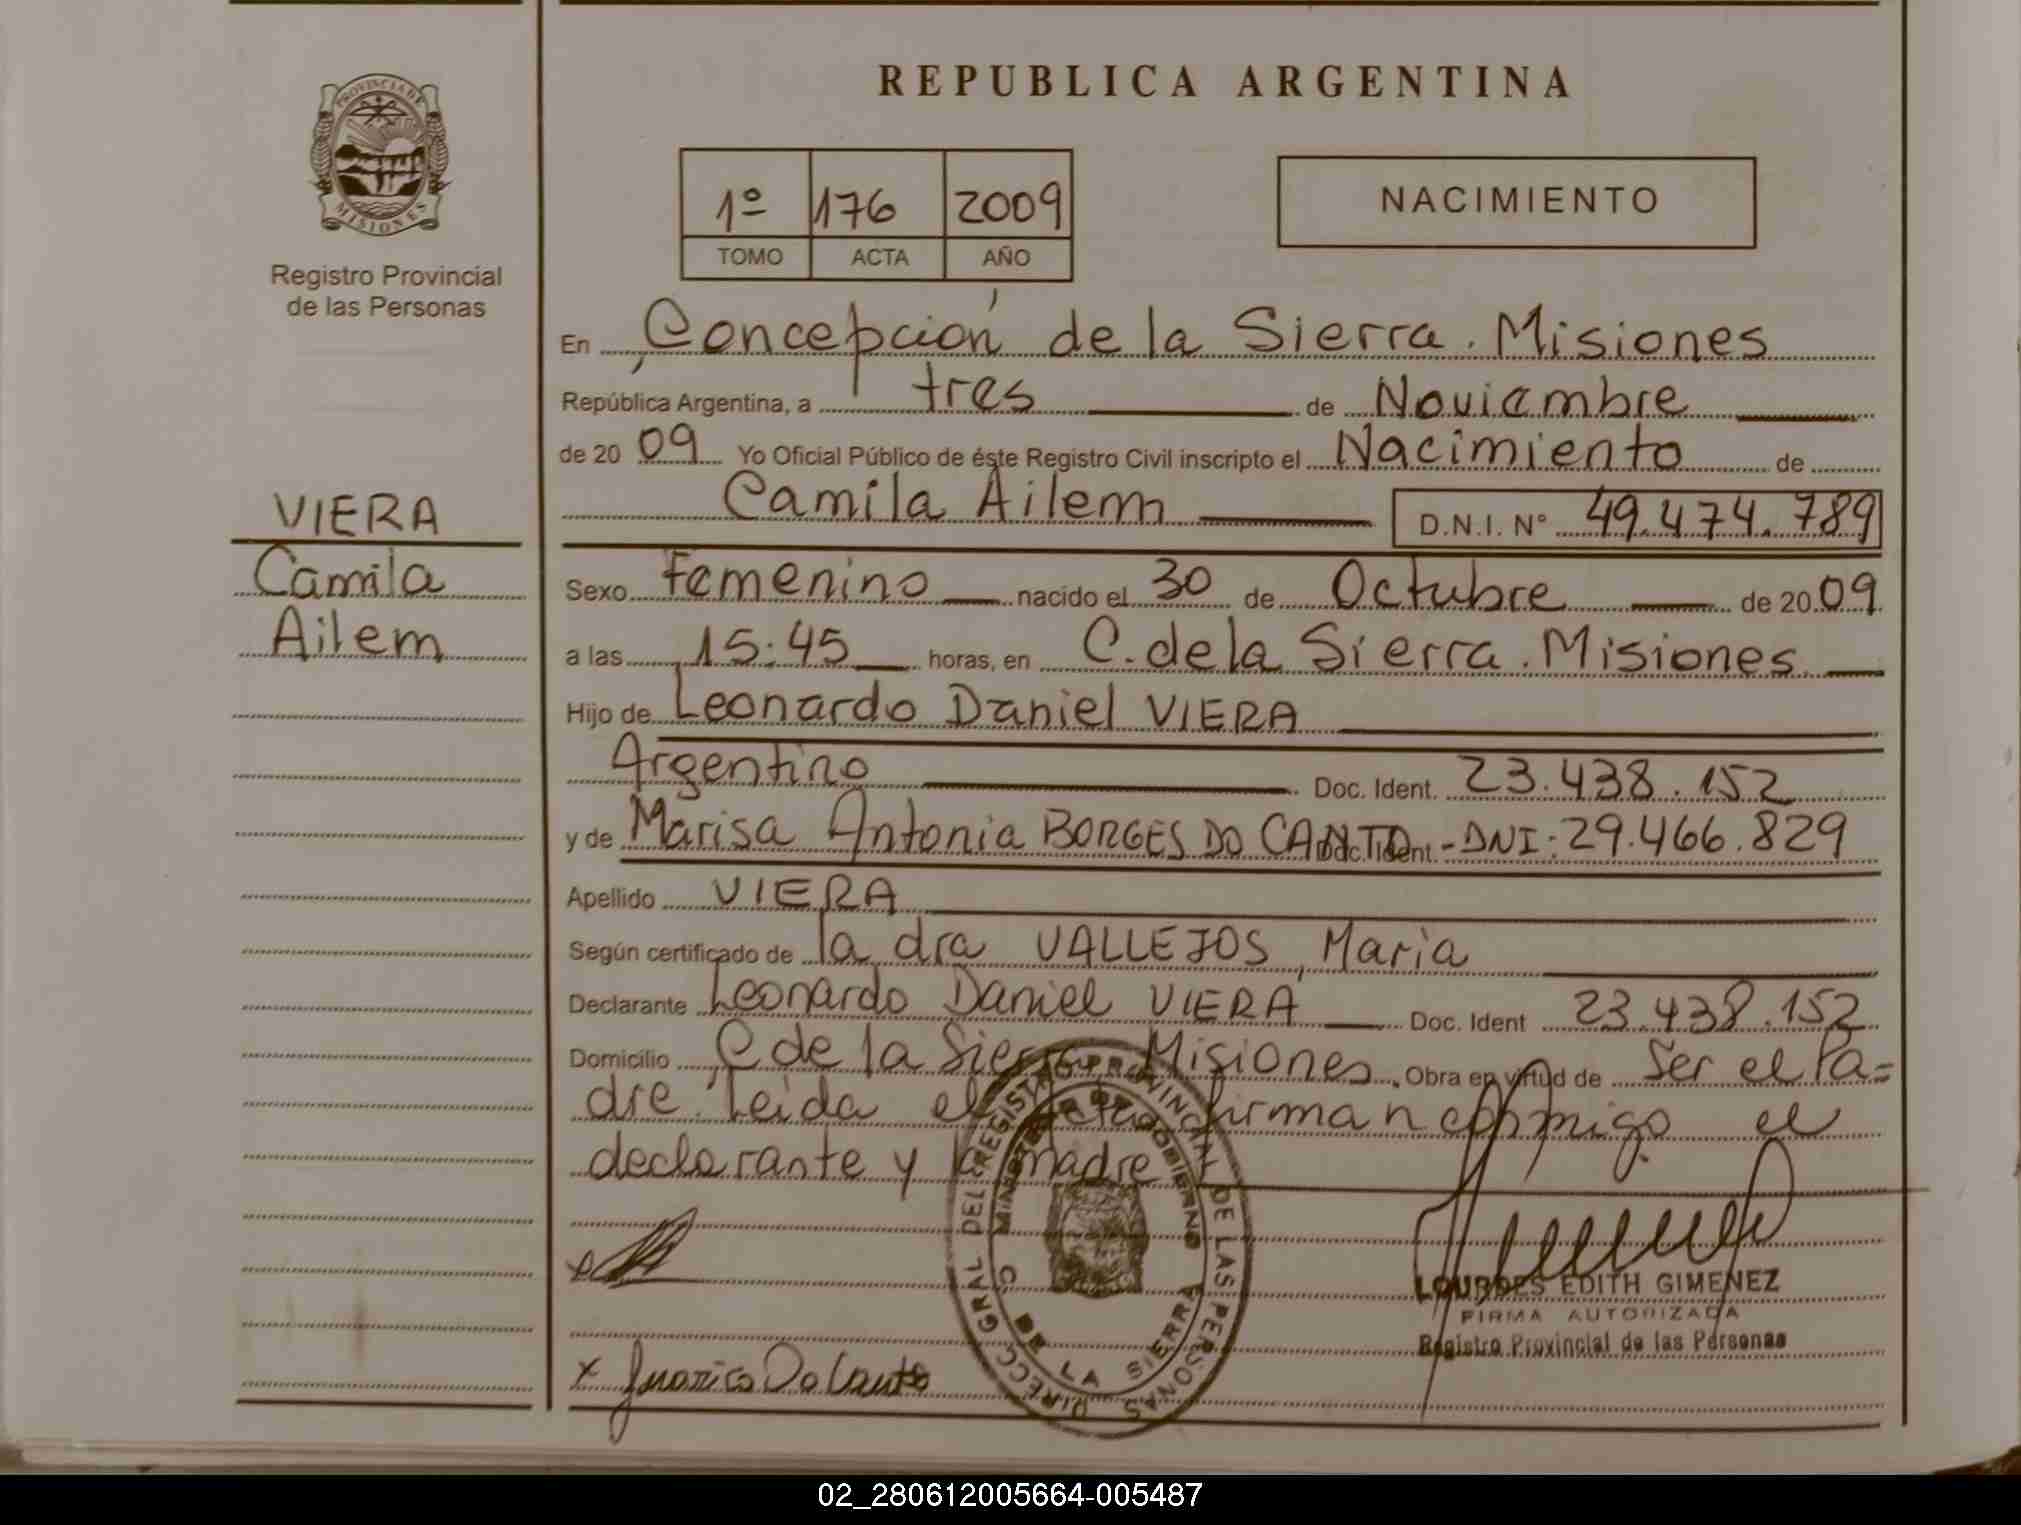 PROVINCIA DE
MISIONES
Registro Provincial
de las Personas
VIERA
Camila
Ailem
REPUBLICA ARGENTINA
1º 176 2009
TOMO ACTA AÑO
NACIMIENTO
En Concepción de la Sierra. Misiones
República Argentina, a tres de Noviembre
de 2009 Yo Oficial Público de éste Registro Civil inscripto el Nacimiento de
Camila Ailem D.N.I. Nº 49.474.789
Sexo Femenino nacido el 30 de Octubre de 2009
a las 15:45 horas, en C. de la Sierra. Misiones
Hijo de Leonardo Daniel VIERA
Argentino Doc. Ident. 23.438.152
y de Marisa Antonia BORGES DO CANTO Doc. Ident. - DNI: 29.466.829
Apellido VIERA
Según certificado de la dra VALLEJOS, Maria
Declarante Leonardo Daniel VIERA Doc. Ident 23.438.152
Domicilio C de la Sierra Misiones. Obra en virtud de Ser el Pa=
dre. Leida el acta firman conmigo el
declarante y la madre
DIRECC GRAL DEL REGISTRO PROVINCIAL DE LAS PERSONAS
MINISTERIO DE GOBIERNO
C DE LA SIERRA
LOURDES EDITH GIMENEZ
FIRMA AUTORIZADA
Registro Provincial de las Personas
x
x Do Canto
02_280612005664-005487